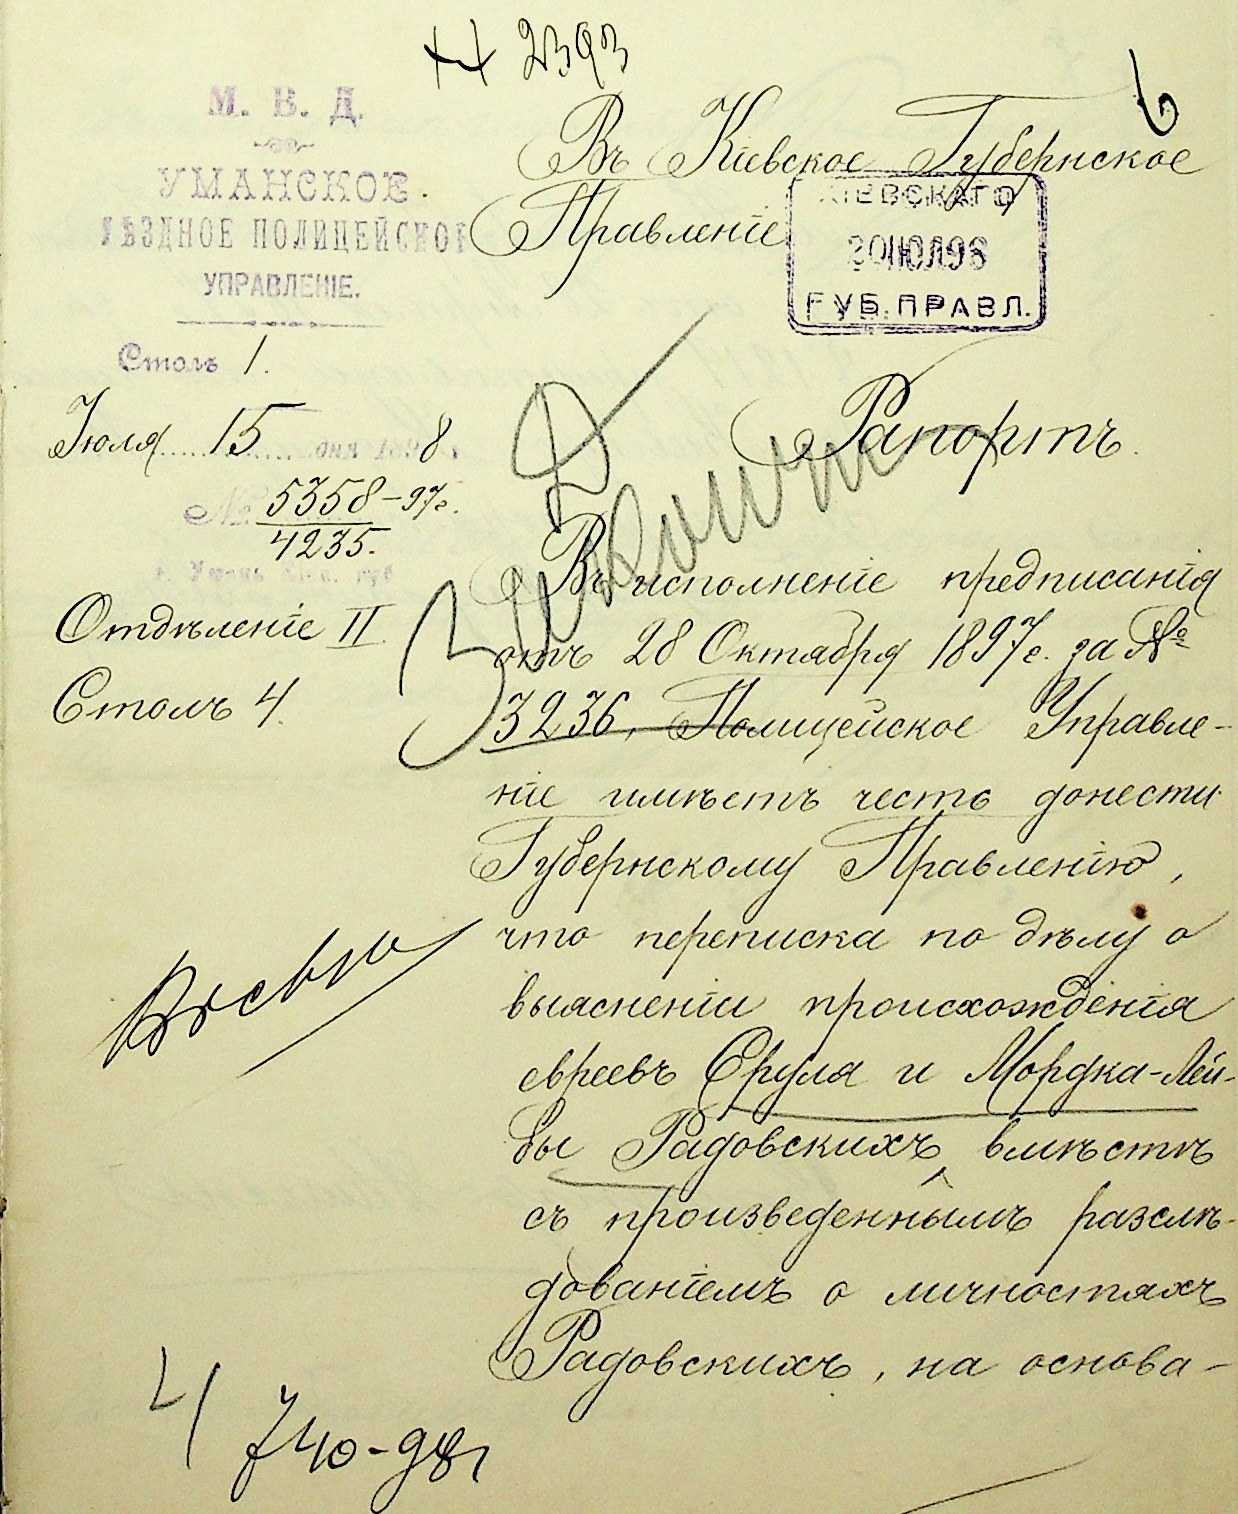 2393
6
М. В. Д.
УМАНСКОЕ
УѢЗДНОЕ ПОЛИЦЕЙСКОЕ
УПРАВЛЕНІЕ.
Столъ 1.
Іюля 15 дня 1898
№ 5358-97г.
4235.
г. Умань Кіев. губ.
Отдѣленіе II
Столъ 4.
Въ Кіевское Губернское
Правленіе
КІЕВСКАГО
20 ІЮЛ 98
ГУБ. ПРАВЛ.
Рапортъ.
Въ исполненіе предписанія
отъ 28 Октября 1897г. за №
3236, Полицейское Управле-
ніе имѣетъ честь донести
Губернскому Правленію,
что переписка по дѣлу о
выясненіи происхожденія
евреевъ Сруля и Мордка-Лей-
бы Радовскихъ, вмѣстѣ
съ произведеннымъ разслѣ-
дованіемъ о личностяхъ
Радовскихъ, на основа-
740-98г